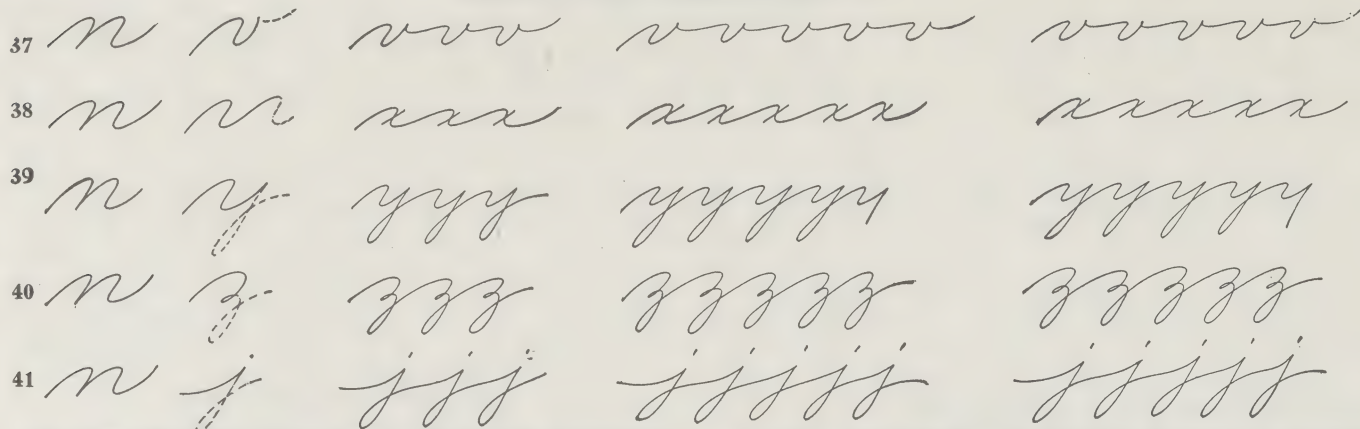 37 n v vvv vvvvv vvvvv
38 n x xxx xxxxx xxxxx
39 n y yyy yyyyy yyyyy
40 n z zzz zzzzz zzzzz
41 n j jjj jjjjj jjjjj